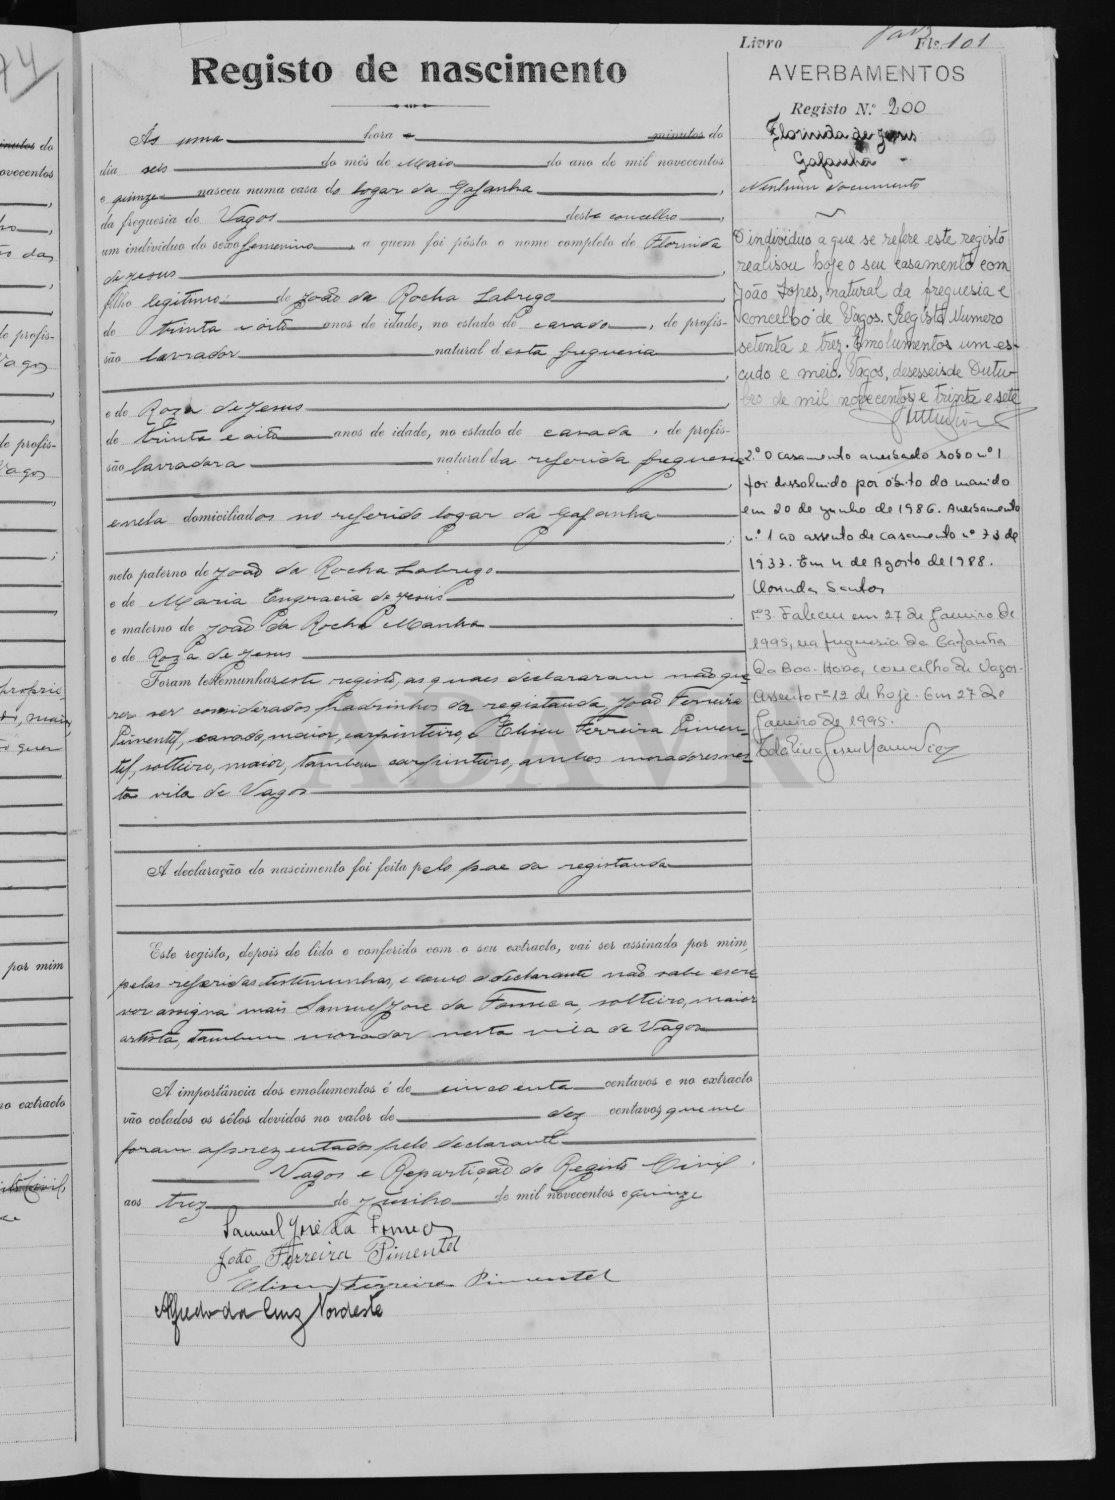 Livro Fls. 101
Registo de nascimento
Ás uma hora e minutos do
dia seis do mês de Maio do ano de mil novecentos
e quinze nasceu numa casa do logar da Gafanha,
da freguesia de Vagos deste concelho,
um indivíduo do sexo femenino, a quem foi pôsto o nome completo de Florinda
de Jesus,
filho legitimo de João da Rocha Labrego
de trinta e oito anos de idade, no estado de casado, de profis-
são lavrador natural desta freguesia
e de Roza de Jesus,
de trinta e oito anos de idade, no estado de casada, de profis-
são lavradora natural da referida freguesia
e nela domiciliados no referido logar da Gafanha
neto paterno de João da Rocha Labrego
e de Maria Engracia de Jesus
e materno de João da Rocha Manha
e de Roza de Jesus
Foram testemunhas este registo, as quaes declararam não que
rer ser considerados padrinhos da registanda, João Ferreira
Pimentel, casado, maior, carpinteiro, e Eliseu Ferreira Pimen-
tel, solteiro, maior, tambem carpinteiro, ambos moradores nes-
ta vila de Vagos
A declaração do nascimento foi feita pelo pae da registanda
Este registo, depois de lido e conferido com o seu extracto, vai ser assinado por mim,
pelas referidas testimunhas, e como o declarante não sabe escre
ver assigna mais Samuel José da Fonseca, solteiro, maior
artista, tambem morador nesta vila de Vagos
A importância dos emolumentos é de cincoenta centavos e no extracto
vão colados os sêlos devidos no valor de dez centavos, que me
foram aprezentados pelo declarante
Vagos e Repartição do Registo Civil,
aos trez de Junho de mil novecentos e quinze
Samuel José da Fonseca
João Ferreira Pimentel
Eliseu Ferreira Pimentel
Alfredo da Cruz Nordeste
AVERBAMENTOS
Registo N.º 200
Florinda de Jesus
Gafanha
Nenhum documento
O individuo a que se refere este registo
realisou hoje o seu casamento com
João Lopes, natural da freguesia e
concelho de Vagos. Registo Numero
setenta e trez. Emolumentos um es-
cudo e meio. Vagos, desesseis de Outu-
bro de mil novecentos e trinta e sete
2.º O casamento averbado sob o nº 1
foi dissolvido por óbito do marido
em 20 de junho de 1986. Averbamento
n.º 1 ao assento de casamento nº 73 de
1937. Em 4 de Agosto de 1988.
Santos
nº 3 Faleceu em 27 de Janeiro de
1995, na freguesia da Gafanha
da Boa-Hora, concelho de Vagos.
Assento nº 12 de hoje. Em 27 de
Janeiro de 1995.
ADAVR